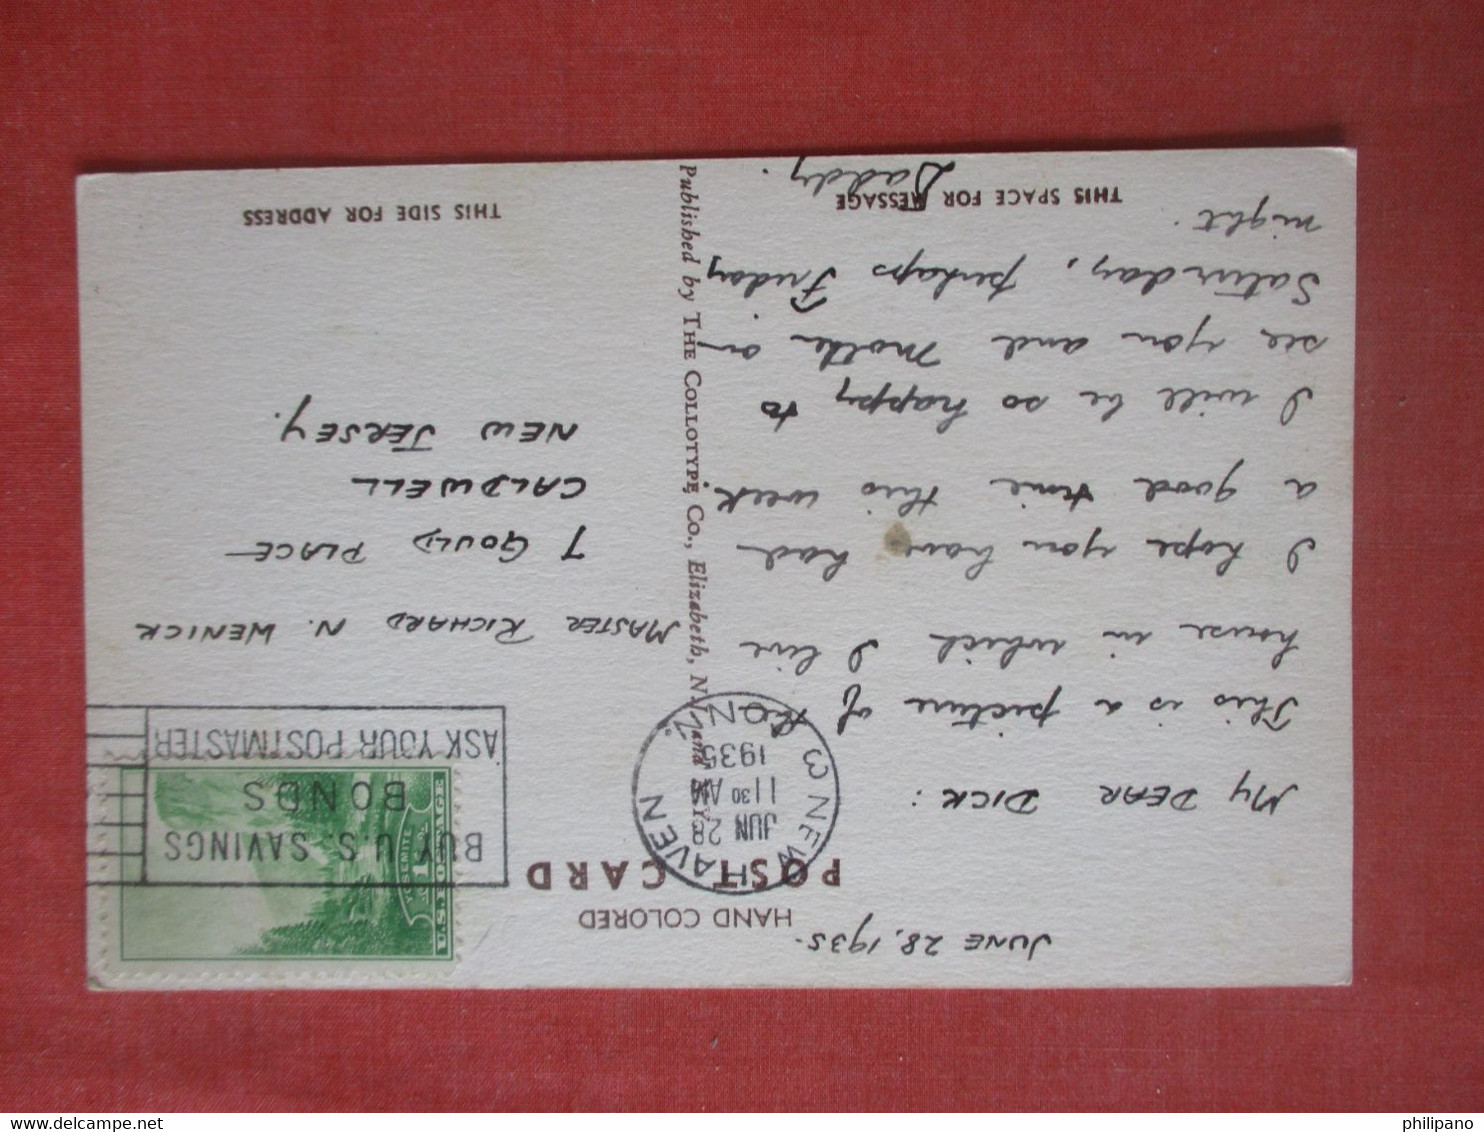 HAND COLORED
POST CARD
JUNE 28, 1935.
MY DEAR DICK:
This is a picture of the
house in which I live
I hope you have had
a good time this week.
I will be so happy to
see you and Mother on
Saturday, perhaps Friday
night.
Daddy.
THIS SPACE FOR MESSAGE
Published by THE COLLOTYPE Co., Elizabeth, N. J. and N. Y.
NEW HAVEN 3
CONN.
JUN 28
11 30 AM
1935
BUY U.S. SAVINGS
BONDS
ASK YOUR POSTMASTER
U.S. POSTAGE
YOSEMITE
1c
MASTER RICHARD N. WENICK
7 GOULD PLACE
CALDWELL
NEW JERSEY.
THIS SIDE FOR ADDRESS
philipano